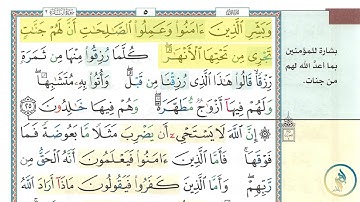 ٥
وَبَشِّرِ ٱلَّذِينَ ءَامَنُوا۟ وَعَمِلُوا۟ ٱلصَّـٰلِحَـٰتِ أَنَّ لَهُمْ جَنَّـٰتٍ
تَجْرِى مِن تَحْتِهَا ٱلْأَنْهَـٰرُ ۖ كُلَّمَا رُزِقُوا۟ مِنْهَا مِن ثَمَرَةٍ
رِّزْقًا ۙ قَالُوا۟ هَـٰذَا ٱلَّذِى رُزِقْنَا مِن قَبْلُ ۖ وَأُتُوا۟ بِهِۦ مُتَشَـٰبِهًا ۖ
وَلَهُمْ فِيهَآ أَزْوَٰجٌ مُّطَهَّرَةٌ ۖ وَهُمْ فِيهَا خَـٰلِدُونَ ٢٥
إِنَّ ٱللَّهَ لَا يَسْتَحْىِۦٓ أَن يَضْرِبَ مَثَلًا مَّا بَعُوضَةً فَمَا
فَوْقَهَا ۚ فَأَمَّا ٱلَّذِينَ ءَامَنُوا۟ فَيَعْلَمُونَ أَنَّهُ ٱلْحَقُّ مِن
رَّبِّهِمْ ۖ وَأَمَّا ٱلَّذِينَ كَفَرُوا۟ فَيَقُولُونَ مَاذَآ أَرَادَ ٱللَّهُ
بشارة للمؤمنين
بما أعدَّ الله لهم
من جنات.